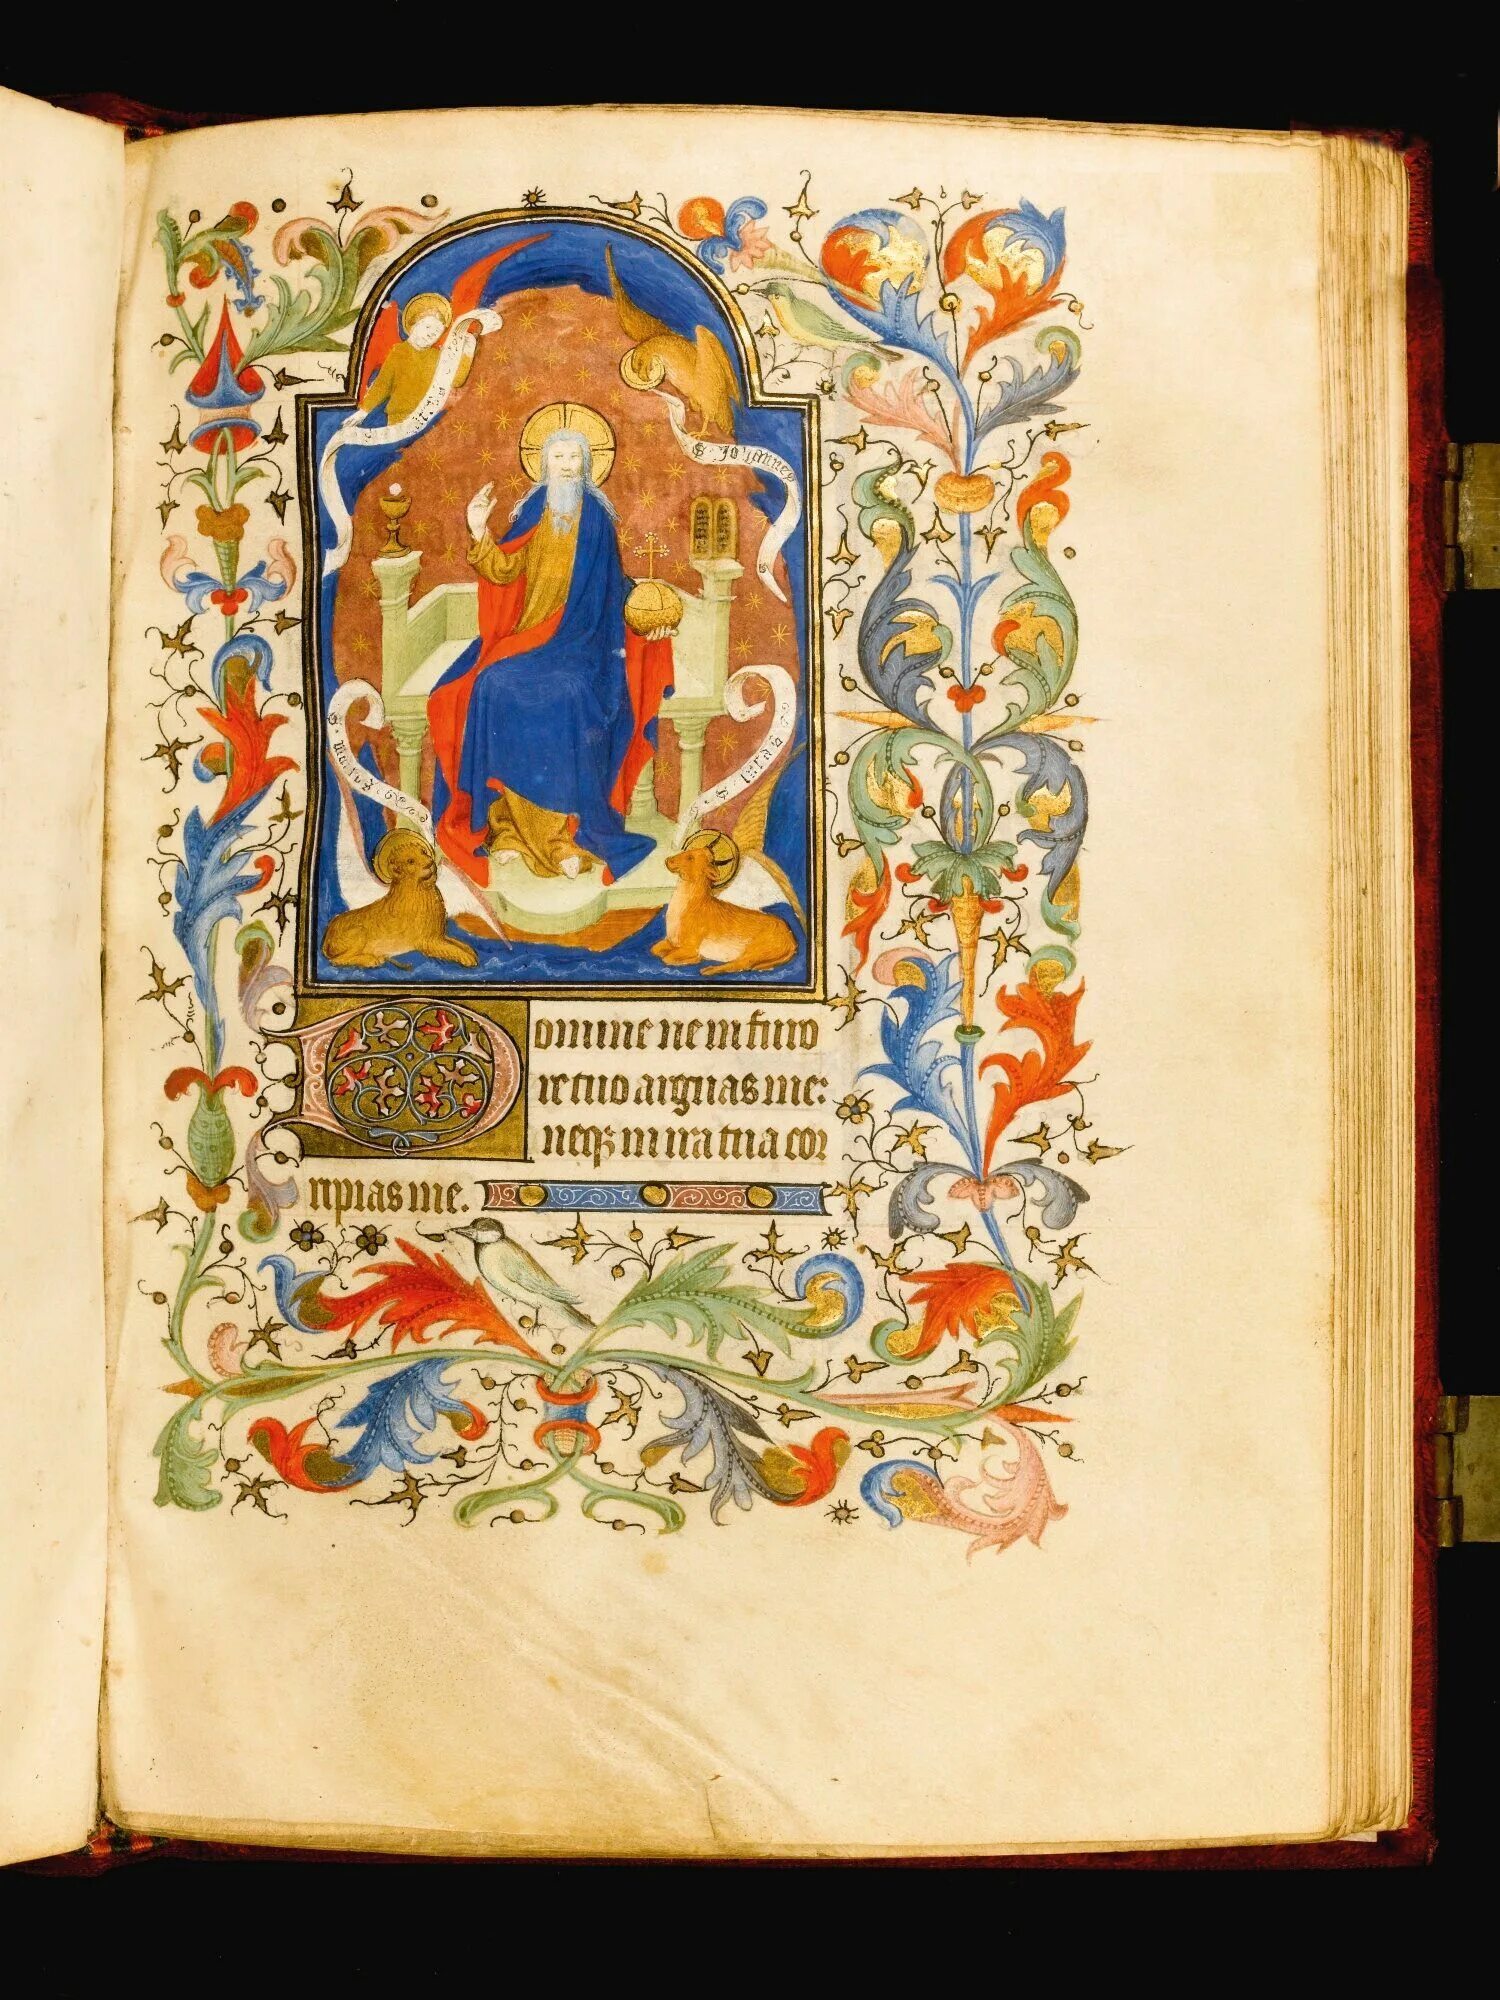 S. Johannes
S. marcus
S. lucas
Domine ne in furo
re tuo arguas me:
neqȝ in ira tua cor
ripias me.